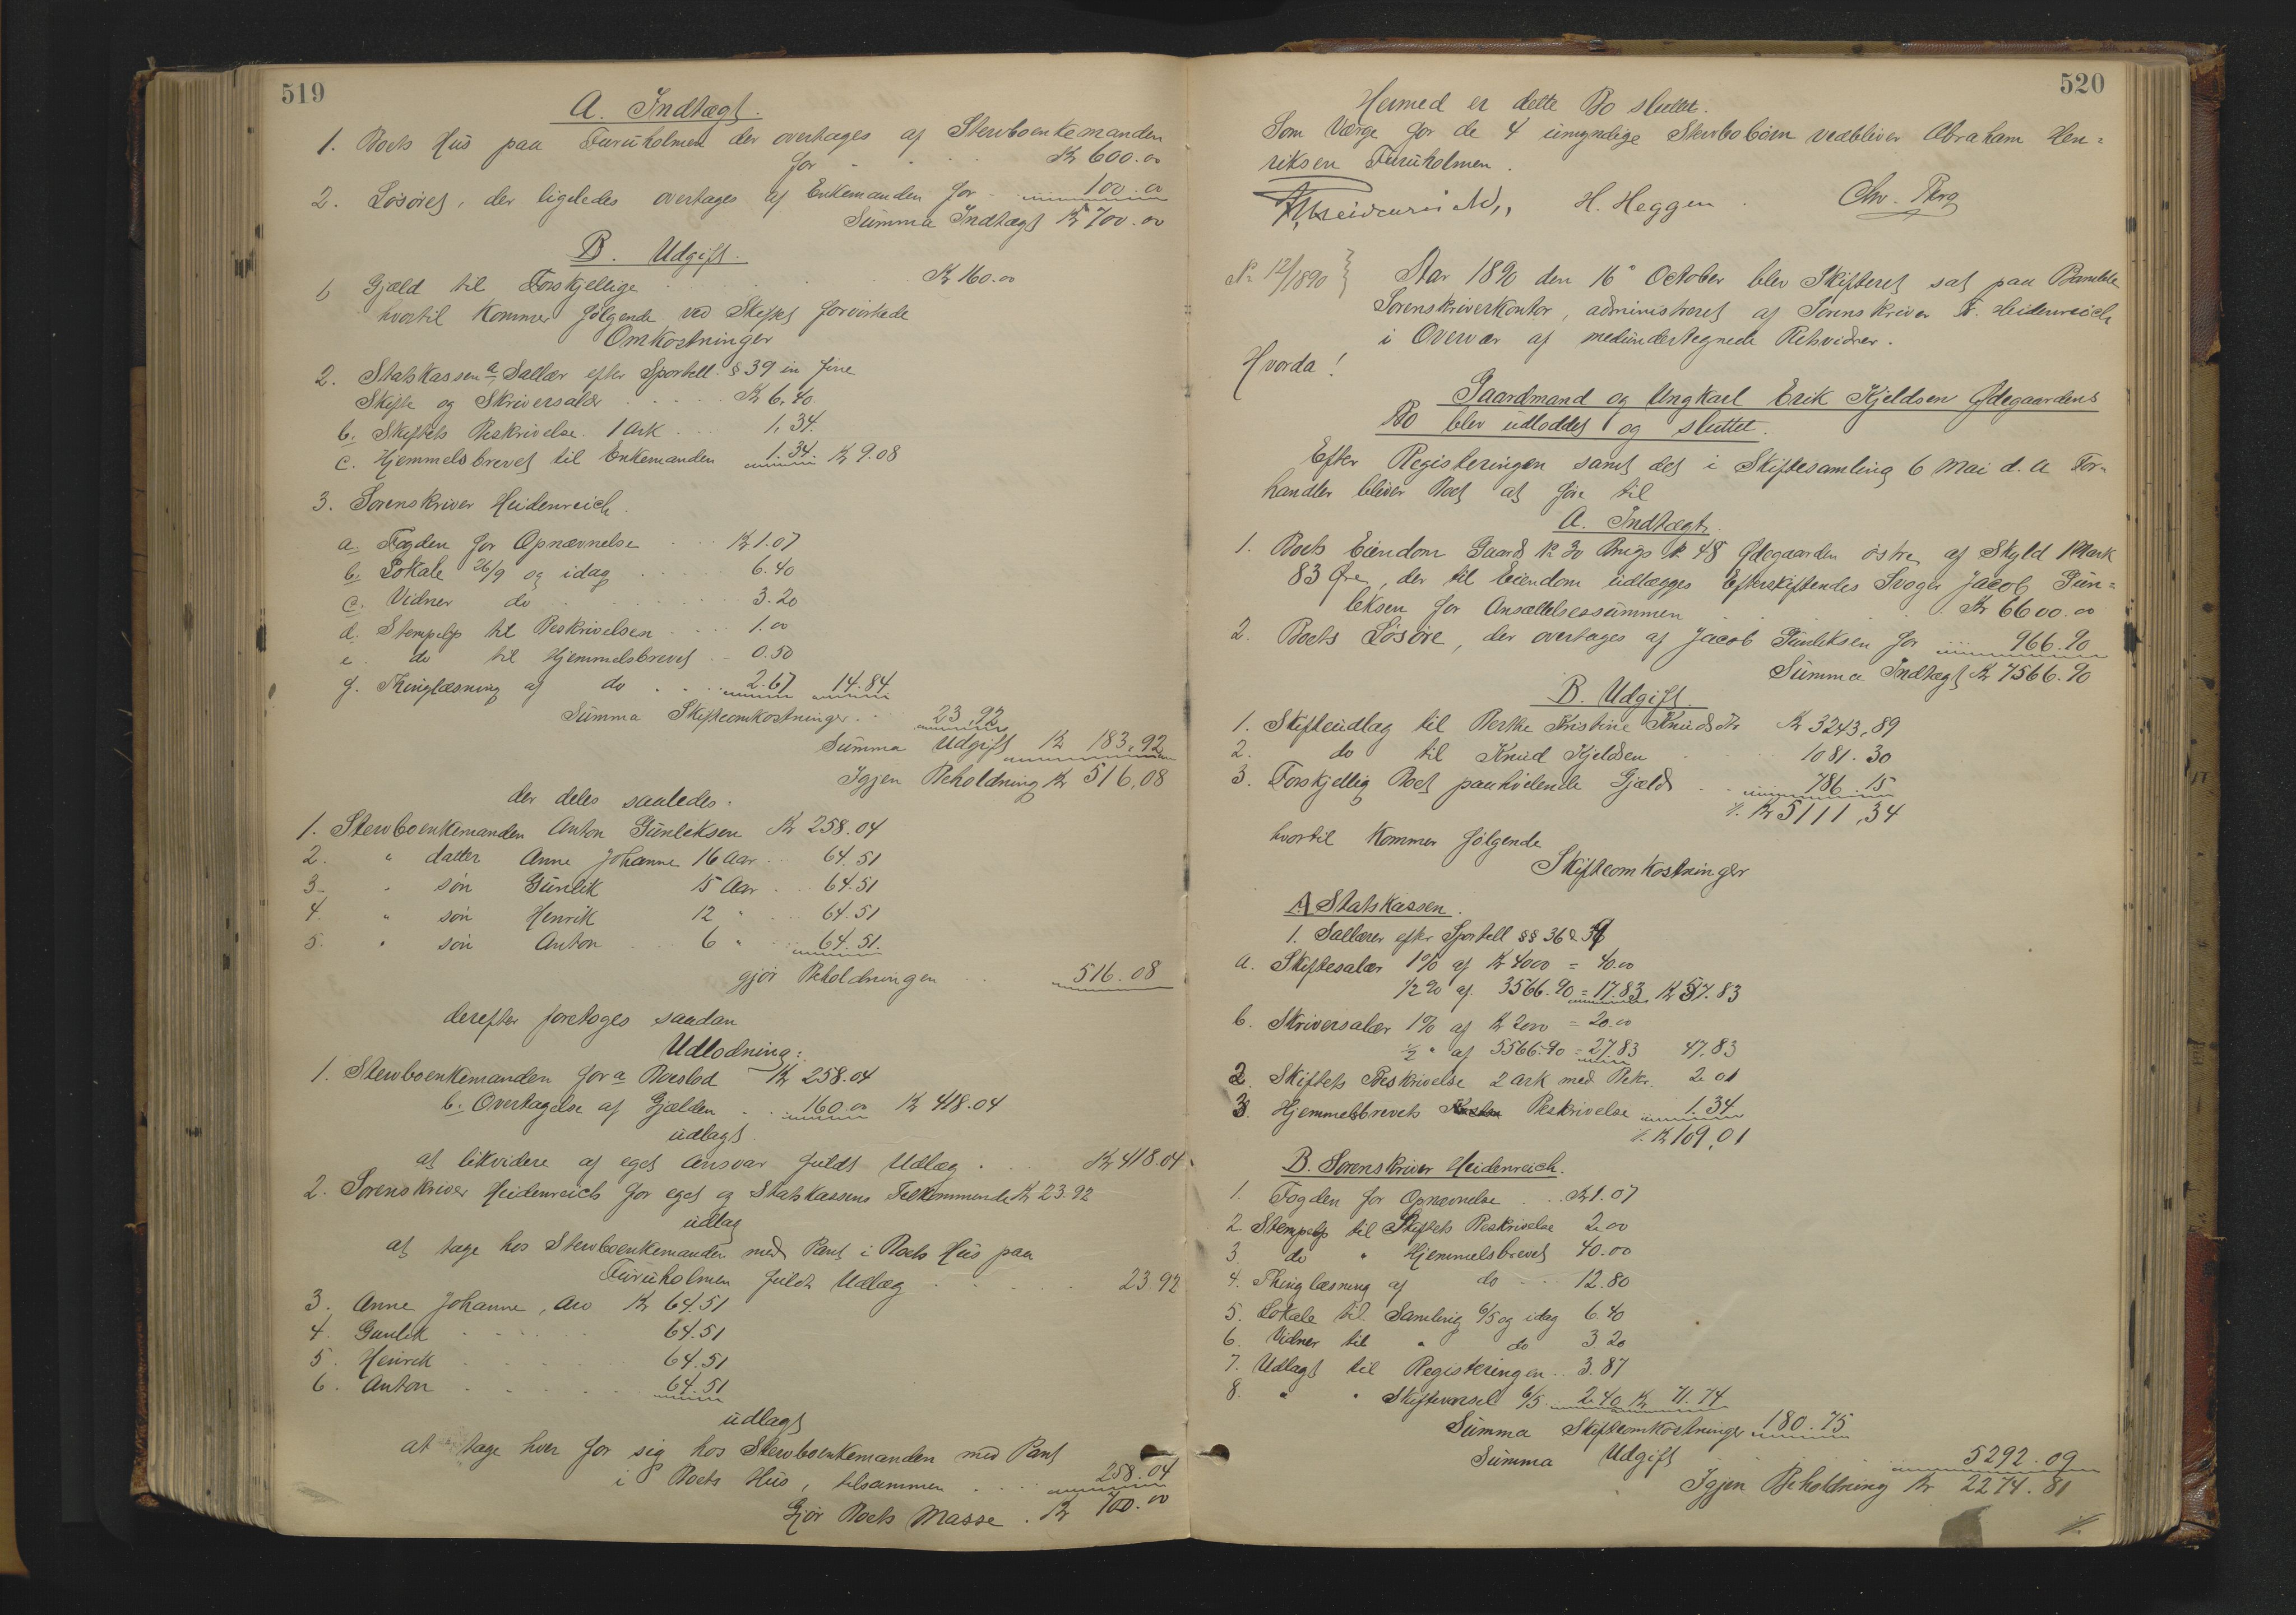 519
A. Indtægt.
1. Boets Hus paa Furuholmen der overtages af Stervboenkemanden
for . . . . Kr 600.00
2. Løsøret, der ligeledes overtages af Enkemanden for 100.00
Summa Indtægt Kr 700.00
B. Udgift.
1 Gjæld til Forskjellige . . . . Kr 160.00
hvortil kommer følgende ved Skiftet forvirkede
Omkostninger
2. Statskassen a, Sallær efter Sportell. § 39 in fine
Skifte og Skriversalær . . . . Kr 6.40.
b. Skiftets Beskrivelse. 1 Ark . . . 1,34.
c. Hjemmelsbrevet til Enkemanden 1.34. Kr 9.08
3. Sorenskriver Heidenreich.
a. Fogden for Opnævnelse . . . Kr 1.07
b. Lokale 26/9 og idag . . . . 6.40
c. Vidner do . . . . 3.20
d. Stempelp til Beskrivelsen . . . 1.00
e. do til Hjemmelsbrevet . . 0.50
f. Thinglæsning af do . . . 2.67 14.84
Summa Skifteomkostninger . . 23,92
Summa Udgift Kr 183,92
Igjen Beholdning Kr 516,08
der deles saaledes:
1. Stervboenkemanden Anton Gunleksen Kr 258.04
2. " datter Anne Johanne 16 Aar . . 64.51
3. " søn Gunlik 15 Aar . . 64.51
4. " søn Henrik 12 " . . 64.51
5. " søn Anton 6 " . . 64.51.
gjør Beholdningen . . 516.08
derefter foretoges saadan
Udlodning:
1. Stervboenkemanden for a Boeslod Kr 258.04
b. Overtagelse af Gjælden . . 160.00 Kr 418.04
udlagt
at likvidere af eget Ansvar fuldt Udlæg . . Kr 418.04
2. Sorenskriver Heidenreich for eget og Statskassens Tilkommende Kr 23.92
udlag
at tage hos Stervboenkemanden med Pant i Boets Hus paa
Furuholmen fuldt Udlæg . . . . 23.92
3. Anne Johanne, Arv Kr 64.51
4. Gunlik . . . . 64.51
5. Henrik . . . . 64.51
6. Anton . . . . 64.51
udlagt
at tage hver for sig hos Stervboenkemanden med Pant
i Boets Hus, tilsammen . . . 258.04
Gjør Boets Masse . Kr 700.00
520
Hermed er dette Bo sluttet.
Som Værge for de 4 umyndige Stervbobørn vedbliver Abraham Hen=
riksen Furuholmen.
H. Heggen. Chr. Berg
No 12/1890 } Aar 1890 den 16de October blev Skifteret sat paa Bamble
Sorenskriverkontor, administreret af Sorenskriver Heidenreich
i Overvær af medundertegnede Retsvidner.
Hvorda!
Gaardmand og Ungkarl Erik Kjeldsen Ødegaardens
Bo blev udloddet og sluttet.
Efter Registeringen samt det i Skiftesamling 6 Mai d. A For=
handler bliver Boet at føre til
A. Indtægt.
1. Boets Eiendom Gaards No 30 Brugs No 48 Ødegaarden østre, af Skyld 1 Mark
83 Øre, der til Eiendom udlægges Efterskiftendes Svoger Jacob Gun=
leksen for Ansættelsessummen . . . . Kr 6600.00
2. Boets Løsøre, der overtages af Jacob Gunleksen for 966.90
Summa Indtægt Kr 7566.90
B. Udgift.
1. Skifteudlæg til Berthe Kristine Knudsdtr Kr 3243,89
2. do til Knud Kjeldsen . . 1081.30
3. Forskjellig Boet paahvilende Gjæld . . 786.15
./. Kr 5111,34
hvortil kommer følgende
Skifteomkostninger
A Statskassen.
1. Sallærer efter Sportell §§ 36 & 39
a. Skiftesalær 1% af Kr 4000 = 40.00
1/2 % af 3566.90 = 17.83 Kr 57.83
b. Skriversalær 1% af Kr 2000 = 20.00
1/2 " af 5566.90 = 27.83 47.83
2. Skiftets Beskrivelse 2 Ark med Bekr. 2.01
3. Hjemmelsbrevets Beskrivelse 1.34
./. Kr 109,01
B. Sorenskriver Heidenreich.
1. Fogden for Opnævnelse . . Kr 1.07
2. Stempelp til Skiftets Beskrivelse 2.00
3. do " Hjemmelsbrevet 40.00
4. Thinglæsning af do . . . 12.80
5. Lokale til Samling 6/5 og idag 6.40
6. Vidner til " do 3.20
7. Udlagt til Registeringen . . 3.87
8. " " Skiftevarsel 6/5 . . 2.40 Kr 71.74
Summa Skifteomkostninger 180.75
Summa Udgift . . . 5292.09
Igjen Beholdning Kr 2274.81
./.